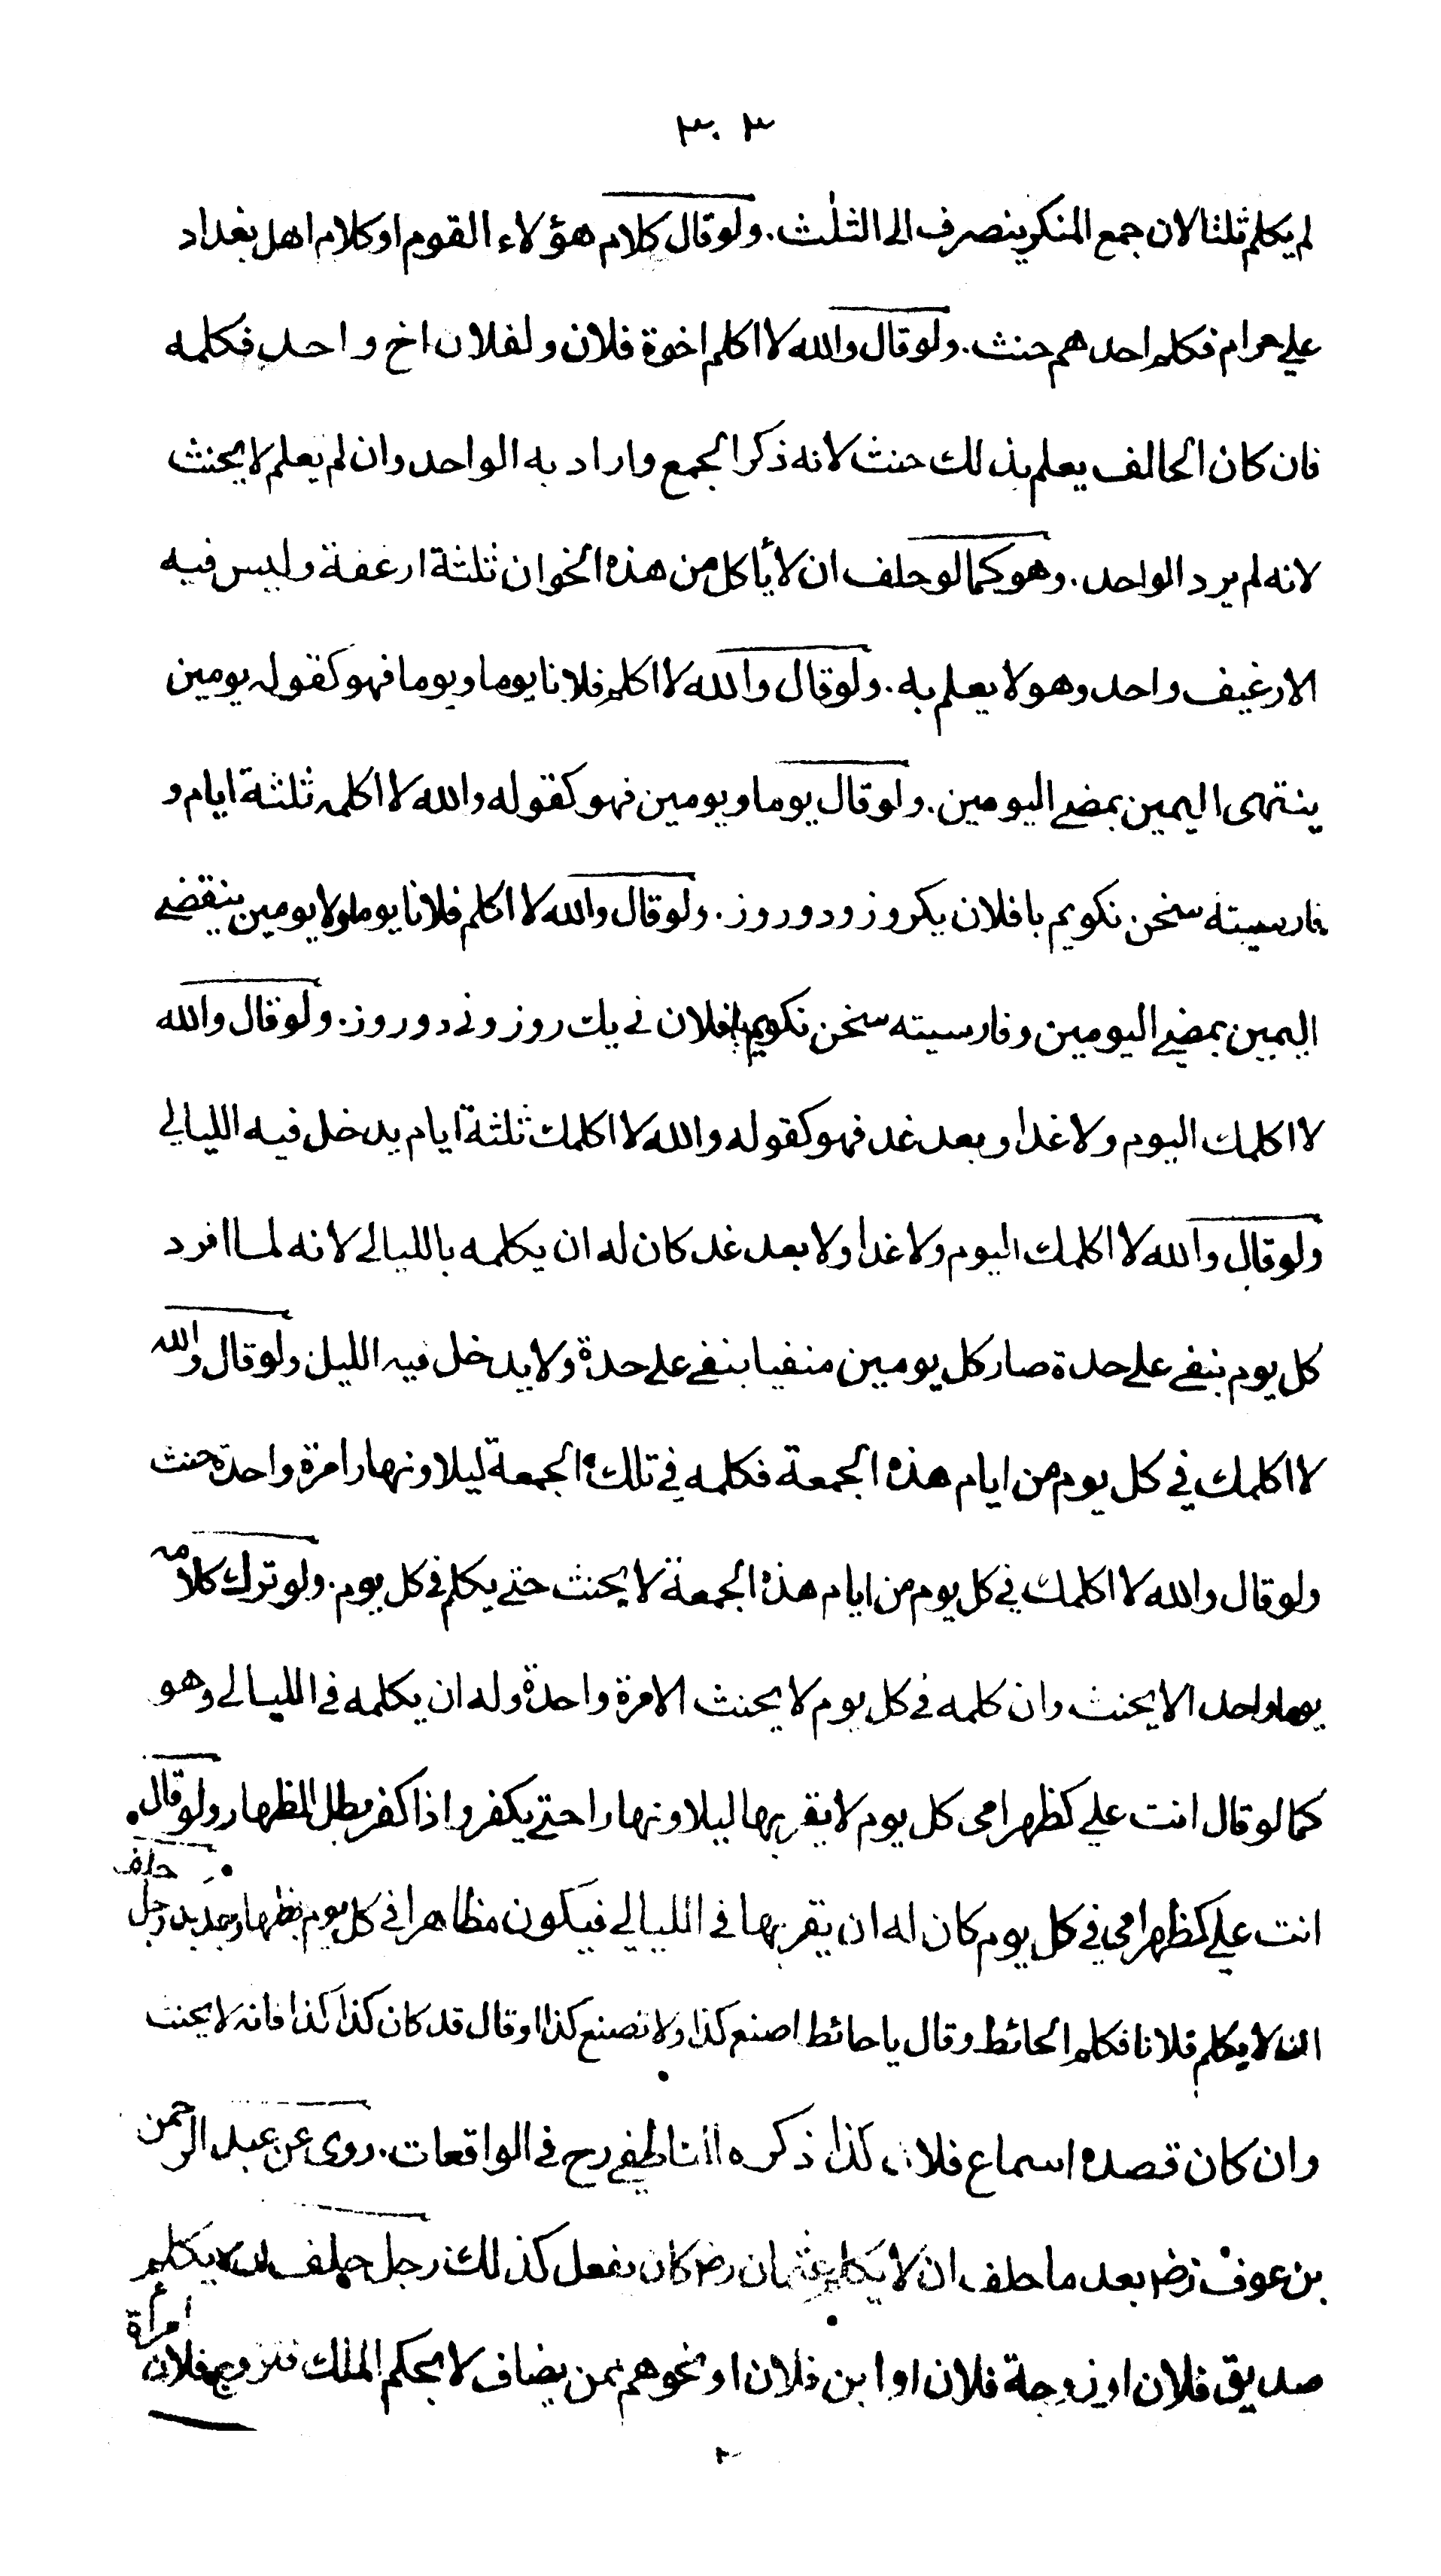 ٣٠٣
لم يكلم ثلثا لان جمع المنكر ينصرف الى الثلث. ولو قال كلام هؤلاء القوم او كلام اهل بغداد
علي حرام فكلم احدهم حنث. ولو قال والله لا اكلم اخوة فلان ولفلان اخ واحد فكلمه
فان كان الحالف يعلم بذلك حنث لانه ذكر الجمع واراد به الواحد وان لم يعلم لا يحنث
لانه لم يرد الواحد. وهو كما لو حلف ان لا يأكل من هذه الخوان ثلثة ارغفة وليس فيه
الا رغيف واحد وهو لا يعلم به. ولو قال والله لا اكلم فلانا يوما ويوما فهو كقوله يومين
ينتهى اليمين بمضي اليومين. ولو قال يوما ويومين فهو كقوله والله لا اكلمه ثلثة ايام و
فارسيته سخن نكويم بافلان يكروز ودو روز. ولو قال والله لا اكلم فلانا يوما ولا يومين ينقضي
اليمين بمضي اليومين وفارسيته سخن نكويم بافلان ني يك روز وني دو روز. ولو قال والله
لا اكلمك اليوم ولا غدا وبعد غد فهو كقوله والله لا اكلمك ثلثة ايام يدخل فيه الليالي
ولو قال والله لا اكلمك اليوم ولا غدا ولا بعد غد كان له ان يكلمه بالليالي لانه لما افرد
كل يوم بنفي على حدة صار كل يومين منفيا بنفي على حدة ولا يدخل فيه الليل ولو قال والله
لا اكلمك في كل يوم من ايام هذه الجمعة فكلمه في تلك الجمعة ليلا ونهارا مرة واحدة حنث
ولو قال والله لا اكلمك في كل يوم من ايام هذه الجمعة لا يحنث حتى يكلم في كل يوم. ولو ترك كلامه
يوما واحدا لا يحنث وان كلمه في كل يوم لا يحنث الا مرة واحدة وله ان يكلمه في الليالي وهو
كما لو قال انت علي كظهر امي كل يوم لا يقربها ليلا ونهارا حتى يكفر واذا كفر بطل الظهار ولو قال
انت علي كظهر امي في كل يوم كان له ان يقربها في الليالي فيكون مظاهرا في كل يوم بظهار جديد رجل حلف
ان لا يكلم فلانا فكلم الحائط وقال يا حائط اصنع كذا ولا تصنع كذا او قال قد كان كذا كذا فانه لا يحنث
وان كان قصده اسماع فلان كذا ذكره الناطفي رح في الواقعات. روى عن عبد الرحمن
بن عوف رض بعد ما حلف ان لا يكلم عثمان رض كان يفعل كذلك رجل حلف ان لا يكلم
صديق فلان او زوجة فلان او ابن فلان او نحوهم ممن يضاف لا بحكم الملك فتزوج فلان امرأة